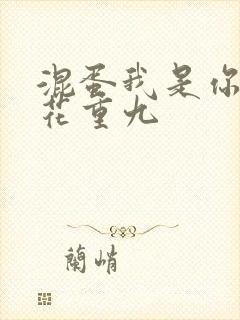 混蛋我是你
花重九
蘭峭